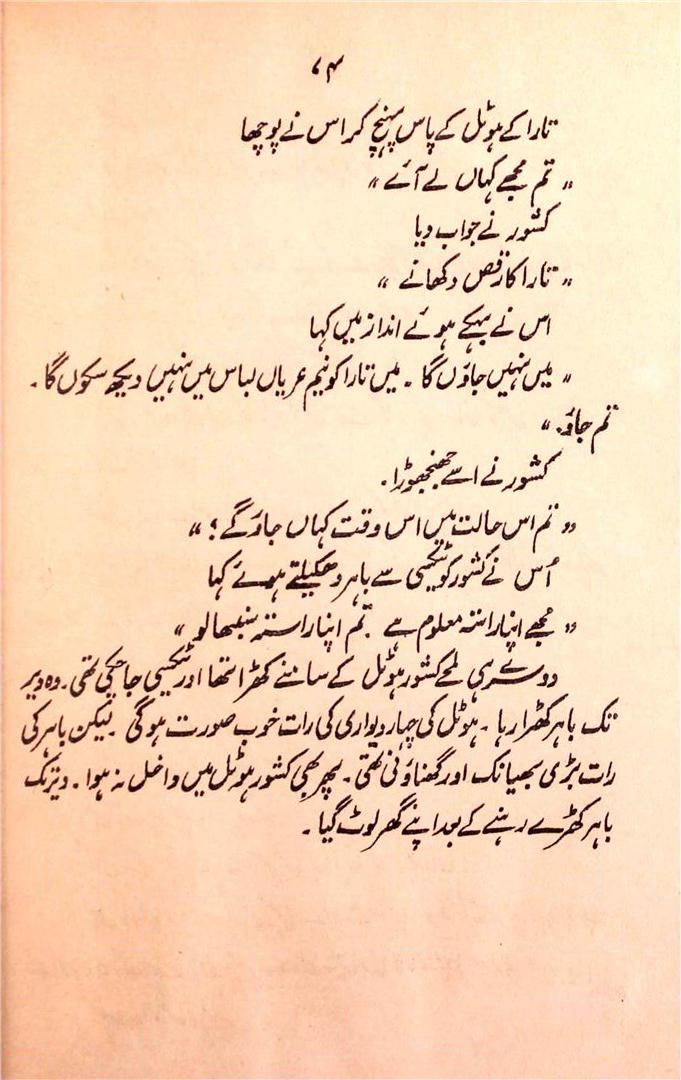 ۷۴
تارا کے ہوٹل کے پاس پہنچ کر اس نے پوچھا
"تم مجھے کہاں لے آئے"
کشور نے جواب دیا
"تارا کا رقص دکھانے"
اس نے بہکے ہوئے انداز میں کہا
"میں نہیں جاؤں گا۔ میں تارا کو نیم عریاں لباس میں نہیں دیکھ سکوں گا۔
تم جاؤ۔"
کشور نے اسے جھنجھوڑا۔
"تم اس حالت میں اس وقت کہاں جاؤ گے؟"
اُس نے کشور کو ٹیکسی سے باہر دھکیلتے ہوئے کہا
"مجھے اپنا راستہ معلوم ہے۔ تم اپنا راستہ سنبھالو"
دوسرے ہی لمحے کشور ہوٹل کے سامنے کھڑا تھا اور ٹیکسی جا چکی تھی۔ وہ دیر
تک باہر کھڑا رہا۔ ہوٹل کی چہار دیواری کی رات خوب صورت ہوگی۔ لیکن باہر کی
رات بڑی بھیانک اور گھناؤنی تھی۔ پھر بھی کشور ہوٹل میں داخل نہ ہوا۔ دیر تک
باہر کھڑے رہنے کے بعد اپنے گھر لوٹ گیا۔